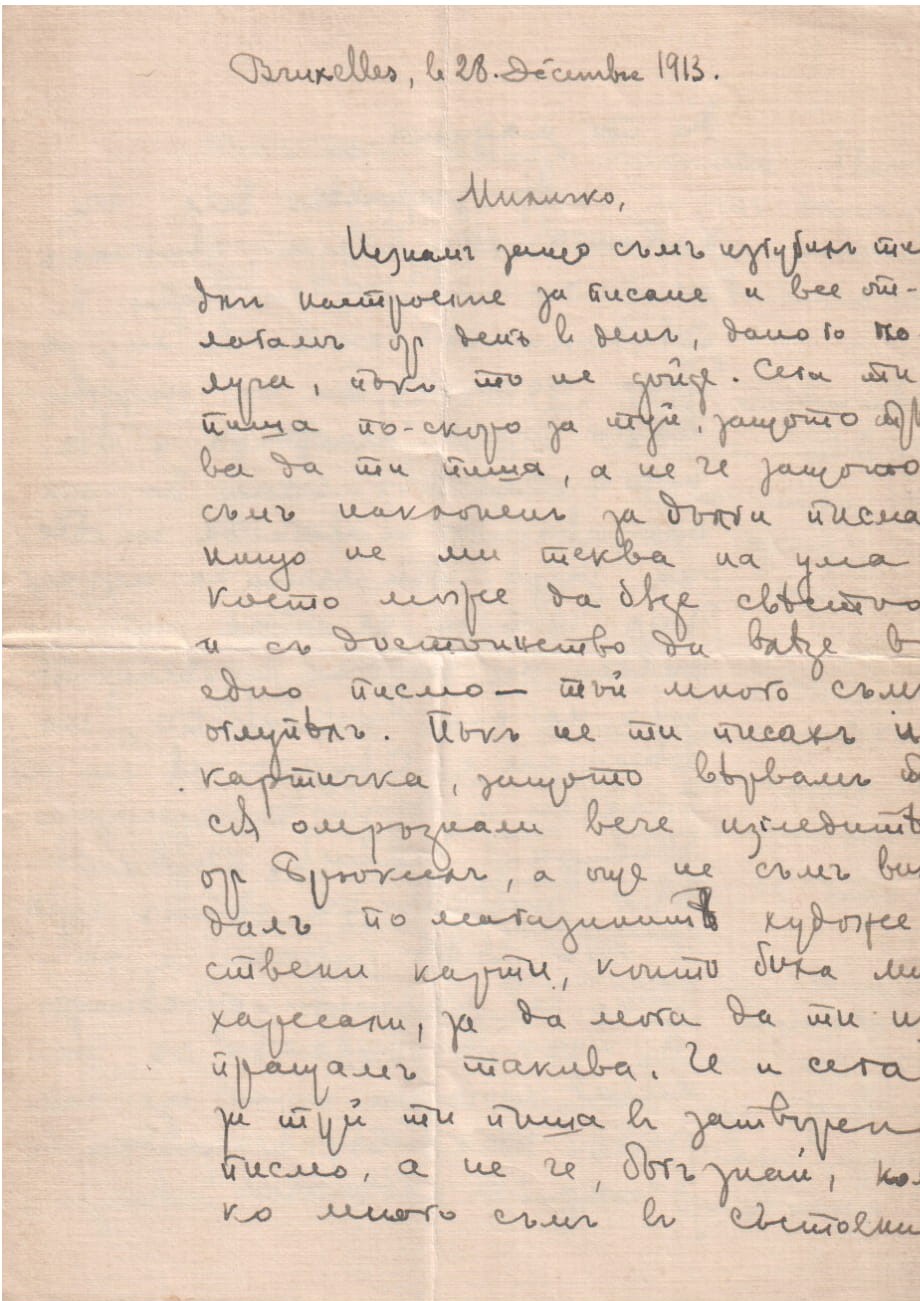 Bruxelles, le 28. Décembre 1913.
Миличко,
Незнамъ защо съмъ изгубилъ тия
дни настроение за писане и все от-
лагамъ от день в день, даното по
луча, пъкъ то не дойде. Сега ти
пиша по-скоро за туй, защото тр
ва да ти пиша, а не че защото
съмъ наклоненъ за дълги писма
нищо не ми теква на ума
което може да бѫде свѣстно
и съ достоинство да влѣзе в
едно писмо — тъй много съмъ
оглупѣлъ. Пъкъ не ти писахъ и
картичка, защото вѣрвамъ
сѫ омръзнали вече изгледитѣ
от Брюкселъ, а още не съмъ ви
далъ по магазинитѣ художе
ствени карти, които биха ми
харесали, за да мога да ти и
пращамъ такива. Че и сега
за туй ти пиша в затворен
писмо, а не че, богъ знай, кол
ко много съмъ в състояни